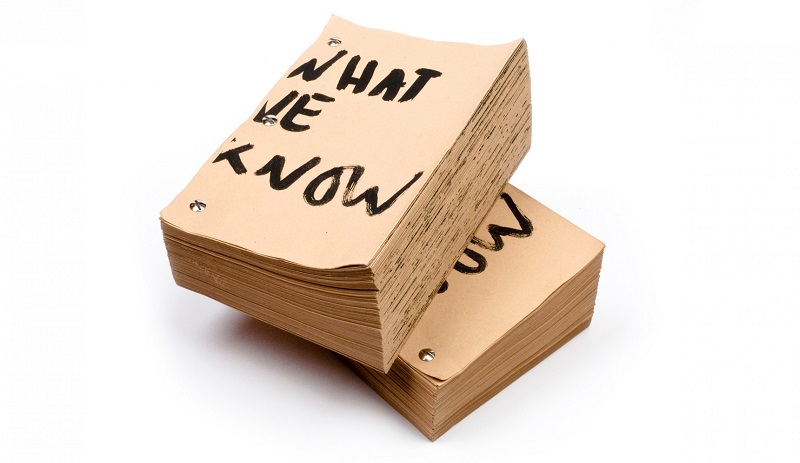 WHAT
WE
KNOW
OW